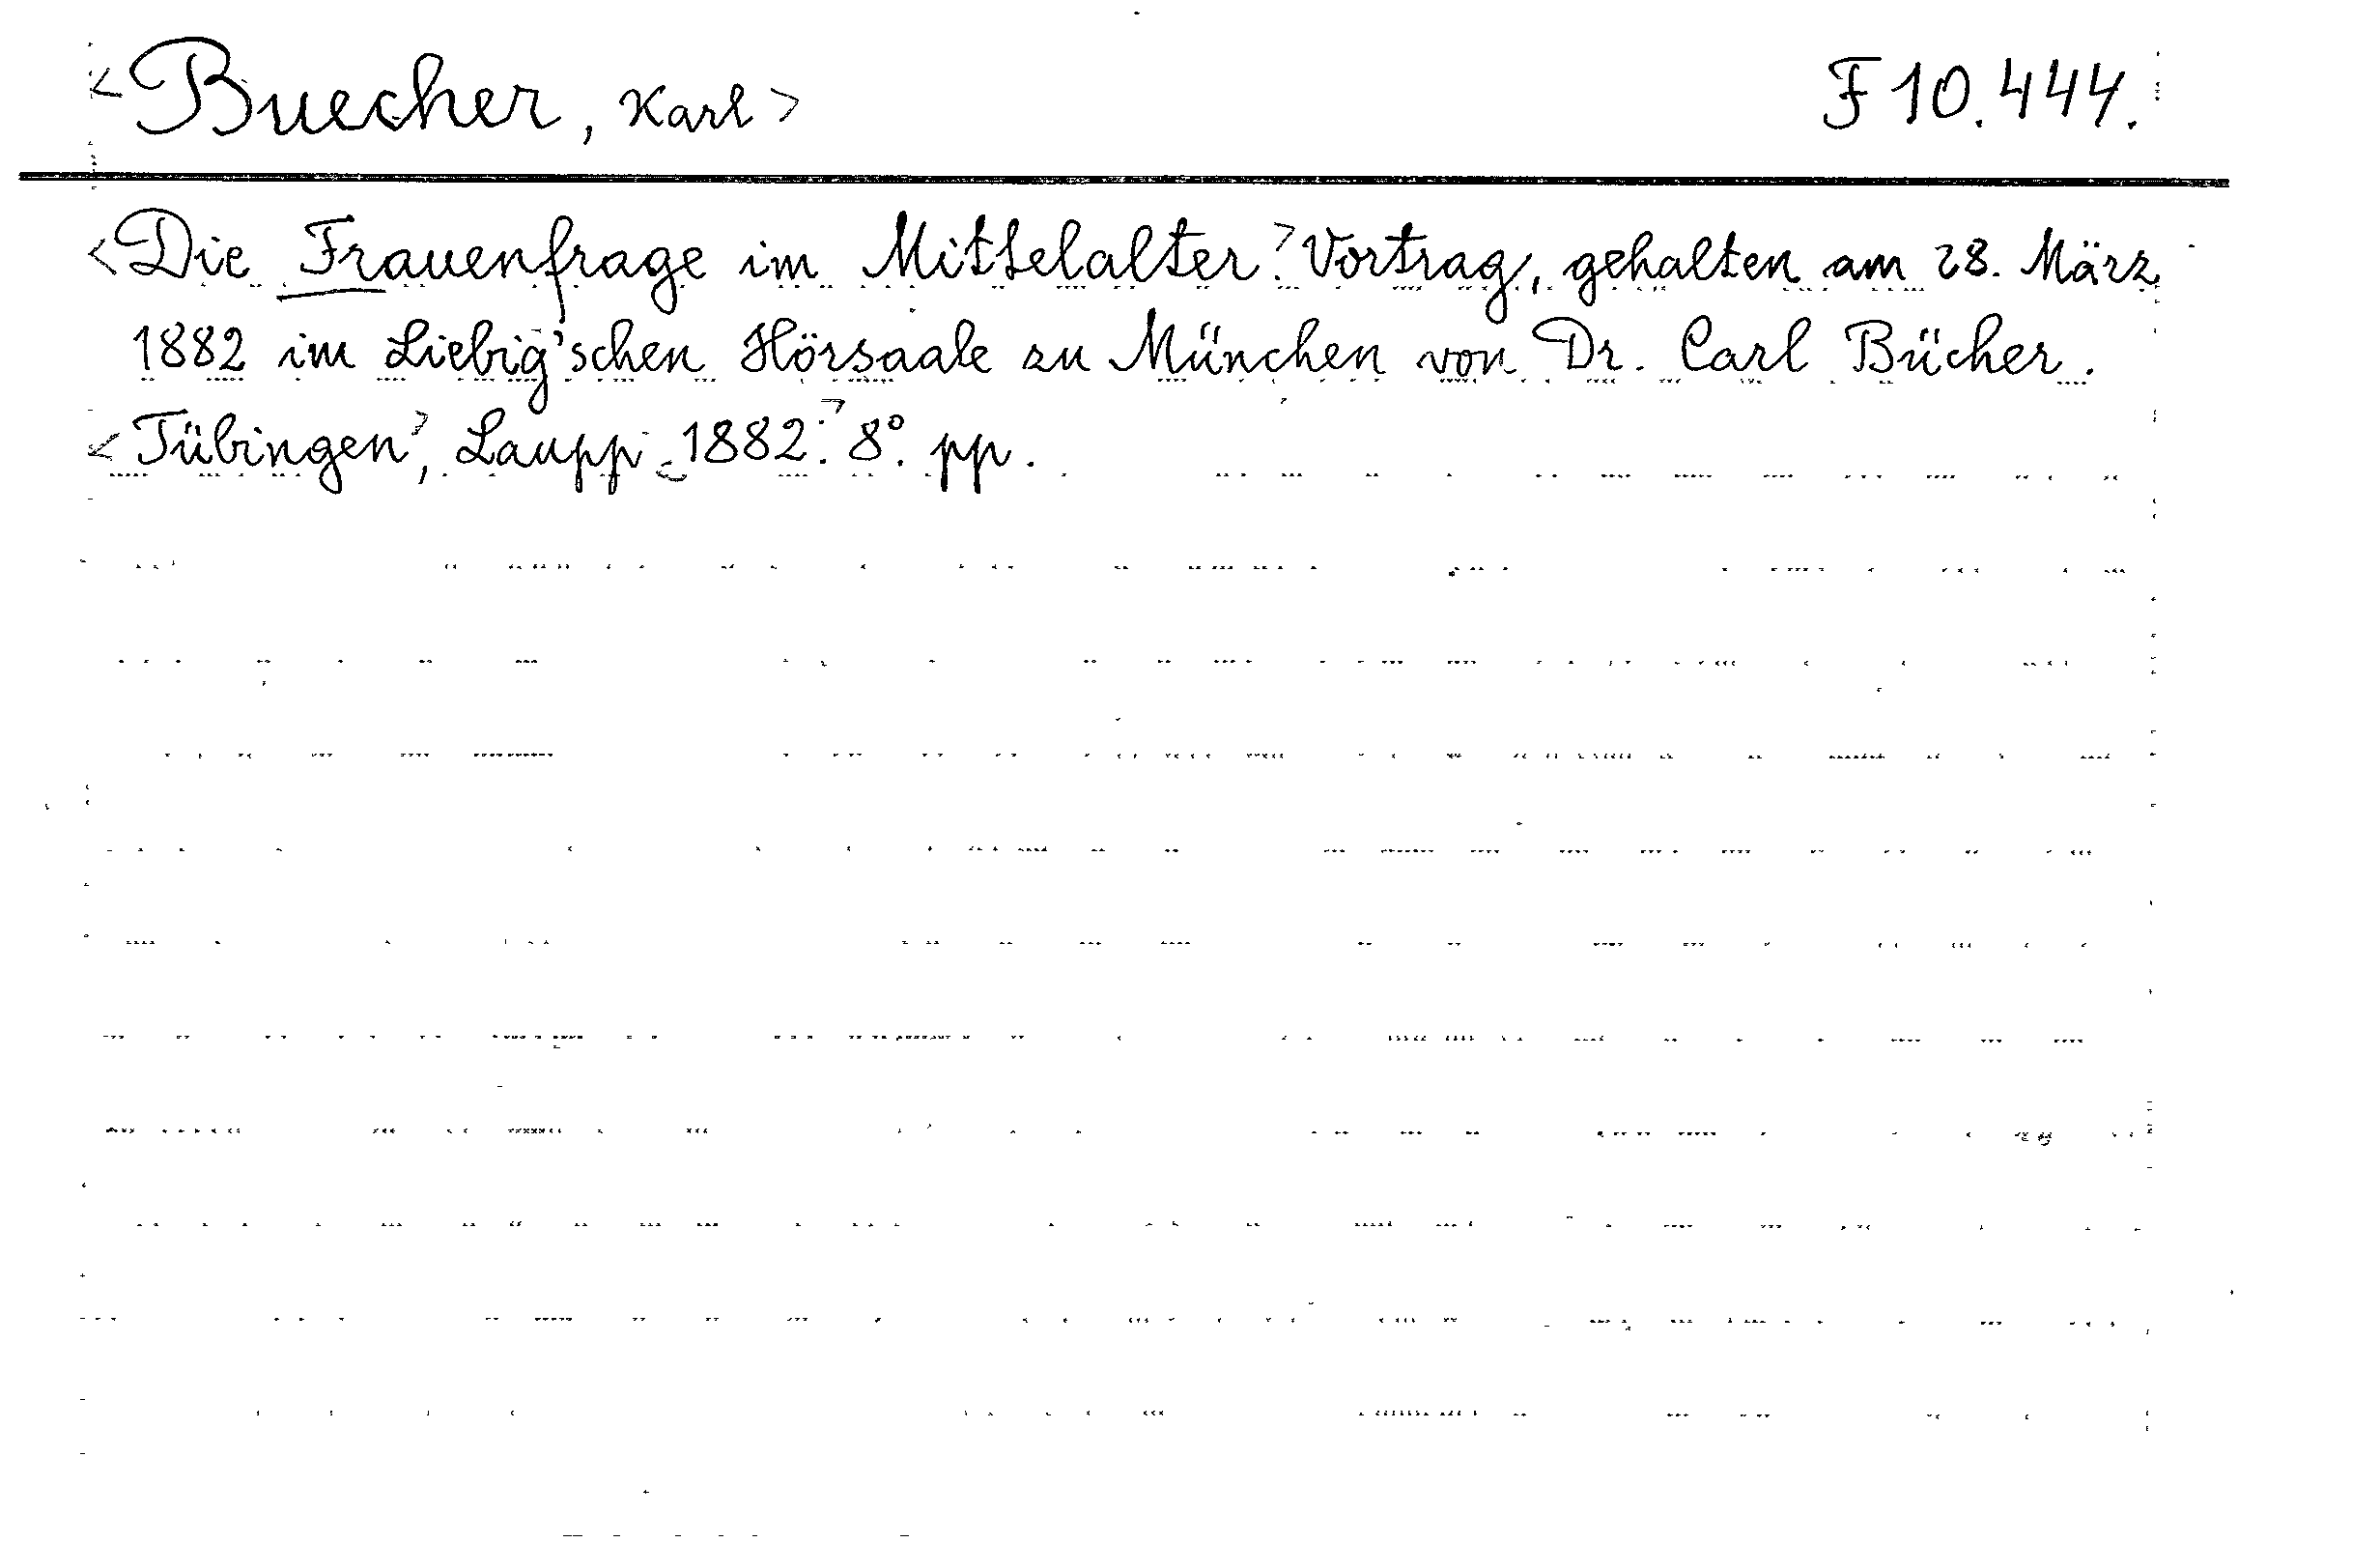 <Buecher, Karl> F 10.444.
<Die Frauenfrage im Mittelalter.> Vortrag, gehalten am 28. März
1882 im Liebig'schen Hörsaale zu München von Dr. Carl Bücher.
<Tübingen>, Laupp <1882.> 8°. pp.